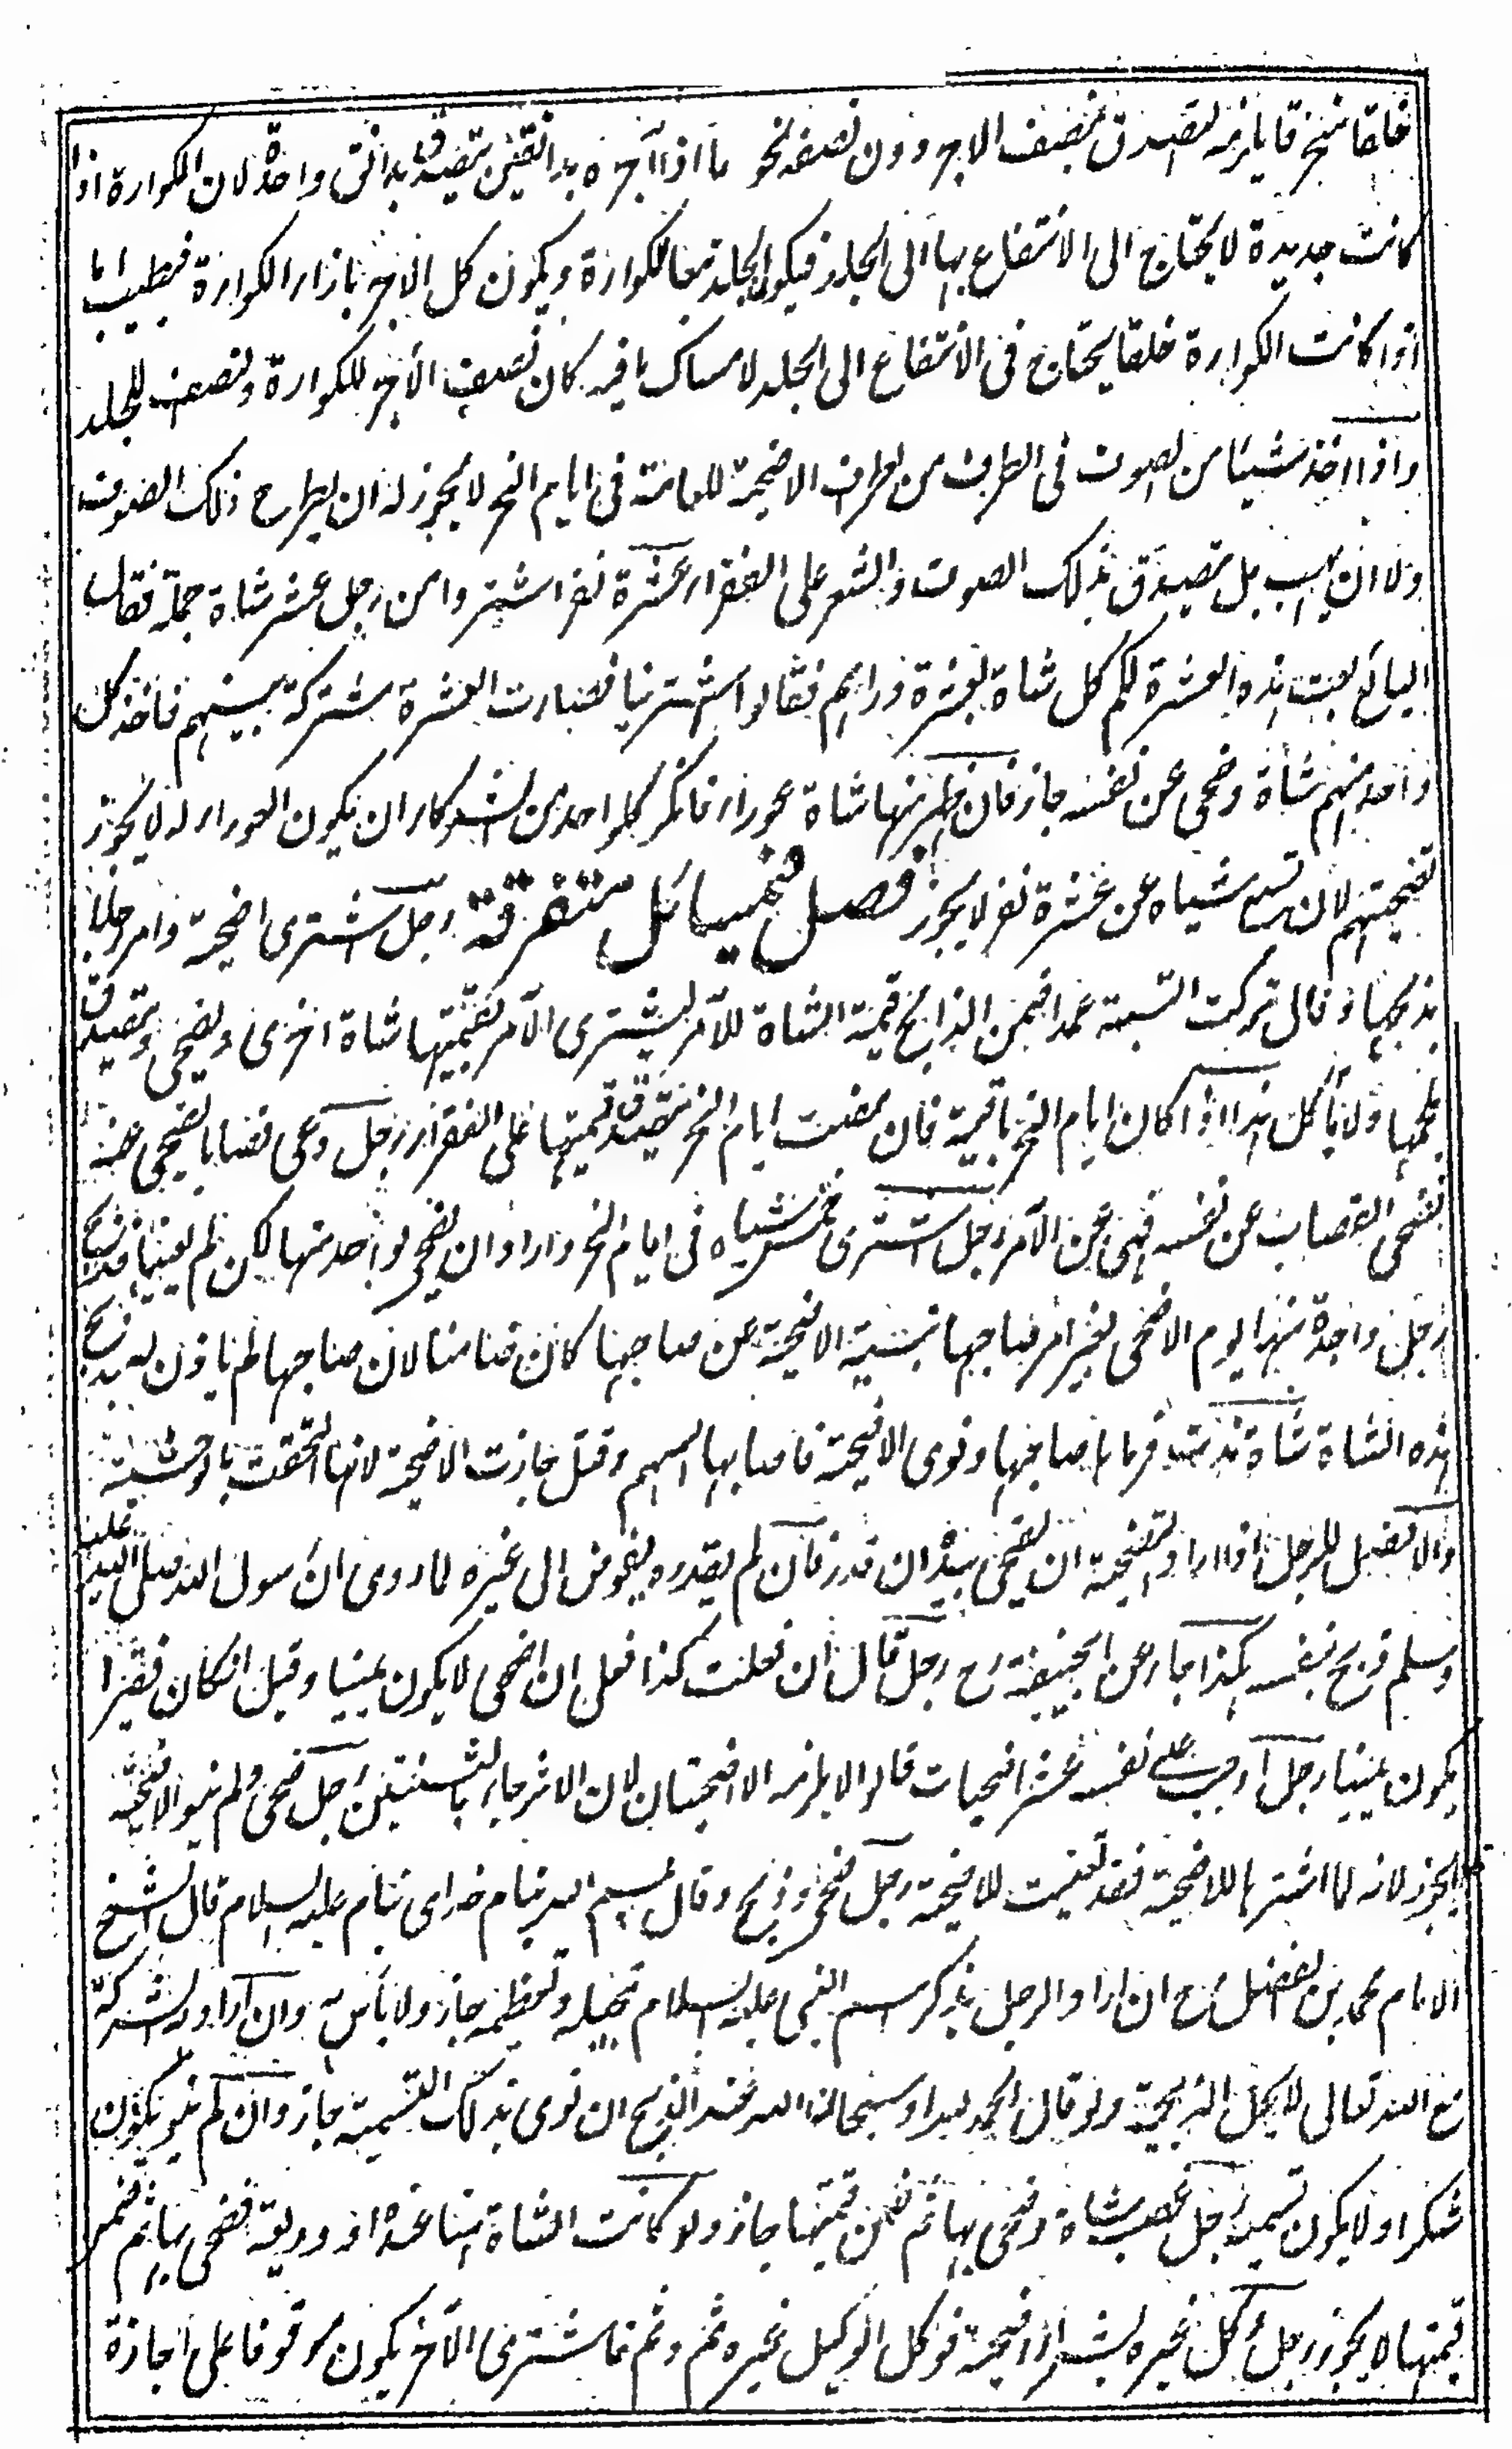 خلقا منخرقا يلزمه التصدق بنصف الاجر ودون نصفه نحو ما اذا آجره بدانقين يتصدق بدانق واحد لان الكوارة اذا
كانت جديدة لا يحتاج الى الانتفاع بها الى الجلد فيكون الجلد تبعا للكوارة ويكون كل الاجر بازاء الكوارة فيطيب اما
اذا كانت الكوارة خلقا يحتاج فى الانتفاع الى الجلد لامساك ما فيه كان نصف الأجر للكوارة ونصف للجلد
واذا اخذ شيئا من الصوف فى الطرف من طرف الاضحية للعلامة فى ايام النحر لا يجوز له ان يطرح ذلك الصوف
ولا ان يهب بل يتصدق بذلك الصوف والشعر على الفقراء عشرة نفر اشتروا من رجل عشر شاة جملة فقال
البائع بعت هذه العشرة لكم كل شاة بعشرة دراهم فقالوا اشترينا فصارت العشرة مشتركة بينهم فاخذ كل
واحد منهم شاة وضحى عن نفسه جاز فان ظهر منها شاة عوراء فانكر كل واحد من الشركاء ان يكون العوراء له لا يجوز
تضحيتهم لان تسع شياه عن عشرة نفر لا يجوز فصل فى مسائل متفرقة رجل اشترى اضحية وامر رجلا
بذبحها وقال تركت التسمية عمدا ضمن الذابح قيمة الشاة للآمر ليشترى الآمر بقيمتها شاة اخرى ويضحى ويتصدق
بلحمها ولا يأكل هذا اذا كان ايام النحر باقية فان مضت ايام النحر يتصدق بقيمتها على الفقراء رجل دعى قصابا ليضحى عنه
فضحى القصاب عن نفسه فهى عن الآمر رجل اشترى خمس شياه فى ايام النحر واراد ان يضحى بواحد منها لكن لم يعينها فذبح
رجل واحدة منها يوم الاضحى بغير امر صاحبها بنية الاضحية عن صاحبها كان ضامنا لان صاحبها لم ياذن له بذبح
هذه الشاة شاة ندت فرماها صاحبها ونوى الاضحية فاصابها السهم وقتل جازت الاضحية لانها التحقت بالوحشية
والافضل للرجل اذا اراد التضحية ان يضحى بيده ان قدر فان لم يقدر يفوض الى غيره لما روى ان رسول الله صلى الله عليه
وسلم ذبح بنفسه هكذا جاء عن ابيحنيفة رح رجل قال ان فعلت كذا فعلى ان اضحى لا يكون يمينا وقيل ان كان فقيرا
يكون يمينا رجل اوجب على نفسه عشر اضحيات قالوا لا يلزمه الا اضحيتان لان الاثر جاء بالثنتين رجل ضحى ولم ينو الاضحية
يجوز لانه لما اشتراها للاضحية فقد تعينت للاضحية رجل ضحى وذبح وقال بسم الله بنام خداى بنام عليه السلام قال الشيخ
الامام محمد بن الفضل رح ان اراد الرجل بذكر اسم النبى عليه السلام تبجيله وتعظيمه جاز ولا بأس به وان اراد به الشركة
مع الله تعالى لا يحل الذبيحة ولو قال الحمد لله او سبحان الله عند الذبح ان نوى بذلك التسمية جاز وان لم ينو يكون
شكرا ولا يكون تسمية رجل غصب شاة وضحى بها ثم ضمن قيمتها جاز ولو كانت الشاة امانة عنده او وديعة فضحى بها ثم ضمن
قيمتها لا يجوز رجل وكل غيره بشراء اضحية فوكل الوكيل غيره ثم وثم فاشترى الآخر يكون موقوفا على اجازة